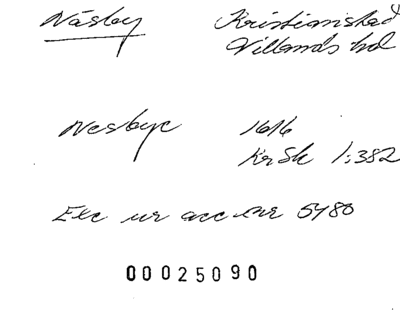 Näsby Kristianstad
Villands hd
Nesbye 1616
KrSk 1:382
Exc ur acc. nr 5480
00025090